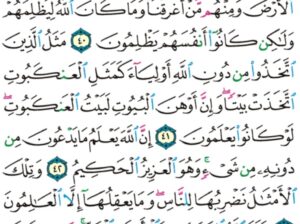 ٱلۡأَرۡضَ وَمِنۡهُم مَّنۡ أَغۡرَقۡنَا وَمَا كَانَ ٱللَّهُ لِيَظۡلِمَهُمۡ
وَلَٰكِن كَانُوٓاْ أَنفُسَهُمۡ يَظۡلِمُونَ ٤٠ مَثَلُ ٱلَّذِينَ
ٱتَّخَذُواْ مِن دُونِ ٱللَّهِ أَوۡلِيَآءَ كَمَثَلِ ٱلۡعَنكَبُوتِ
ٱتَّخَذَتۡ بَيۡتٗاۖ وَإِنَّ أَوۡهَنَ ٱلۡبُيُوتِ لَبَيۡتُ ٱلۡعَنكَبُوتِۖ
لَوۡ كَانُواْ يَعۡلَمُونَ ٤١ إِنَّ ٱللَّهَ يَعۡلَمُ مَا يَدۡعُونَ مِن
دُونِهِۦ مِن شَيۡءٖۚ وَهُوَ ٱلۡعَزِيزُ ٱلۡحَكِيمُ ٤٢ وَتِلۡكَ
ٱلۡأَمۡثَٰلُ نَضۡرِبُهَا لِلنَّاسِۖ وَمَا يَعۡقِلُهَآ إِلَّا ٱلۡعَٰلِمُونَ